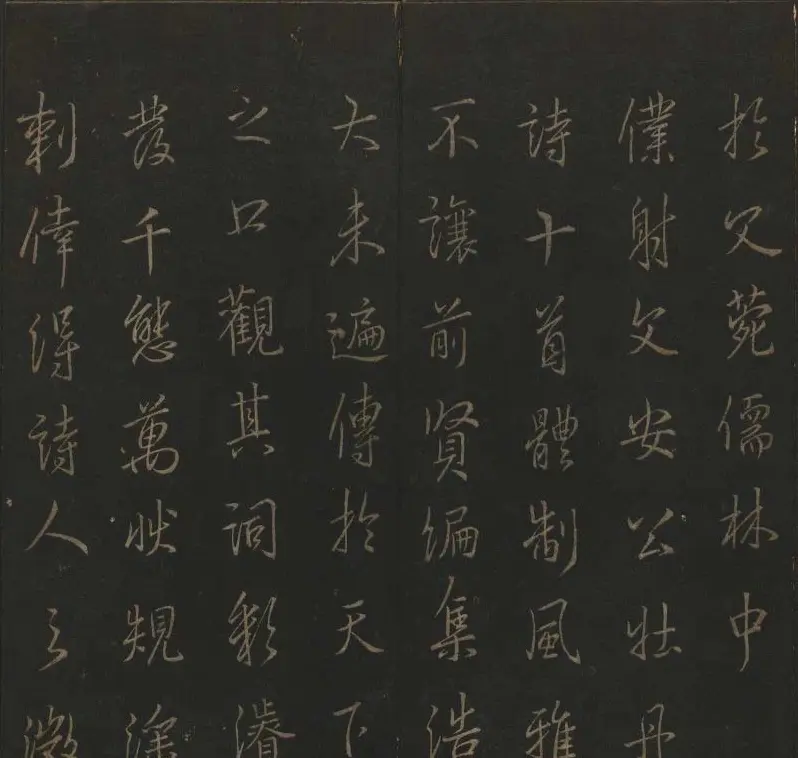 於文苑儒林中
僕射文安公牡丹
詩十首體制風雅
不讓前賢編集浩
大未遍傳於天下
之口觀其詞彩濬
發千態萬狀規深
刺得詩人之微